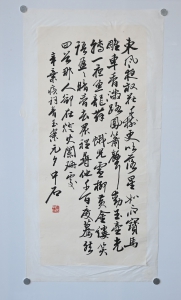 東風夜放花千樹更吹落星如雨寶馬
雕車香滿路鳳簫聲動玉壺光
轉一夜魚龍舞蛾兒雪柳黃金縷笑
語盈盈暗香去眾裡尋他千百度驀然
回首那人卻在燈火闌珊處
辛棄疾詞青玉案元夕 中石